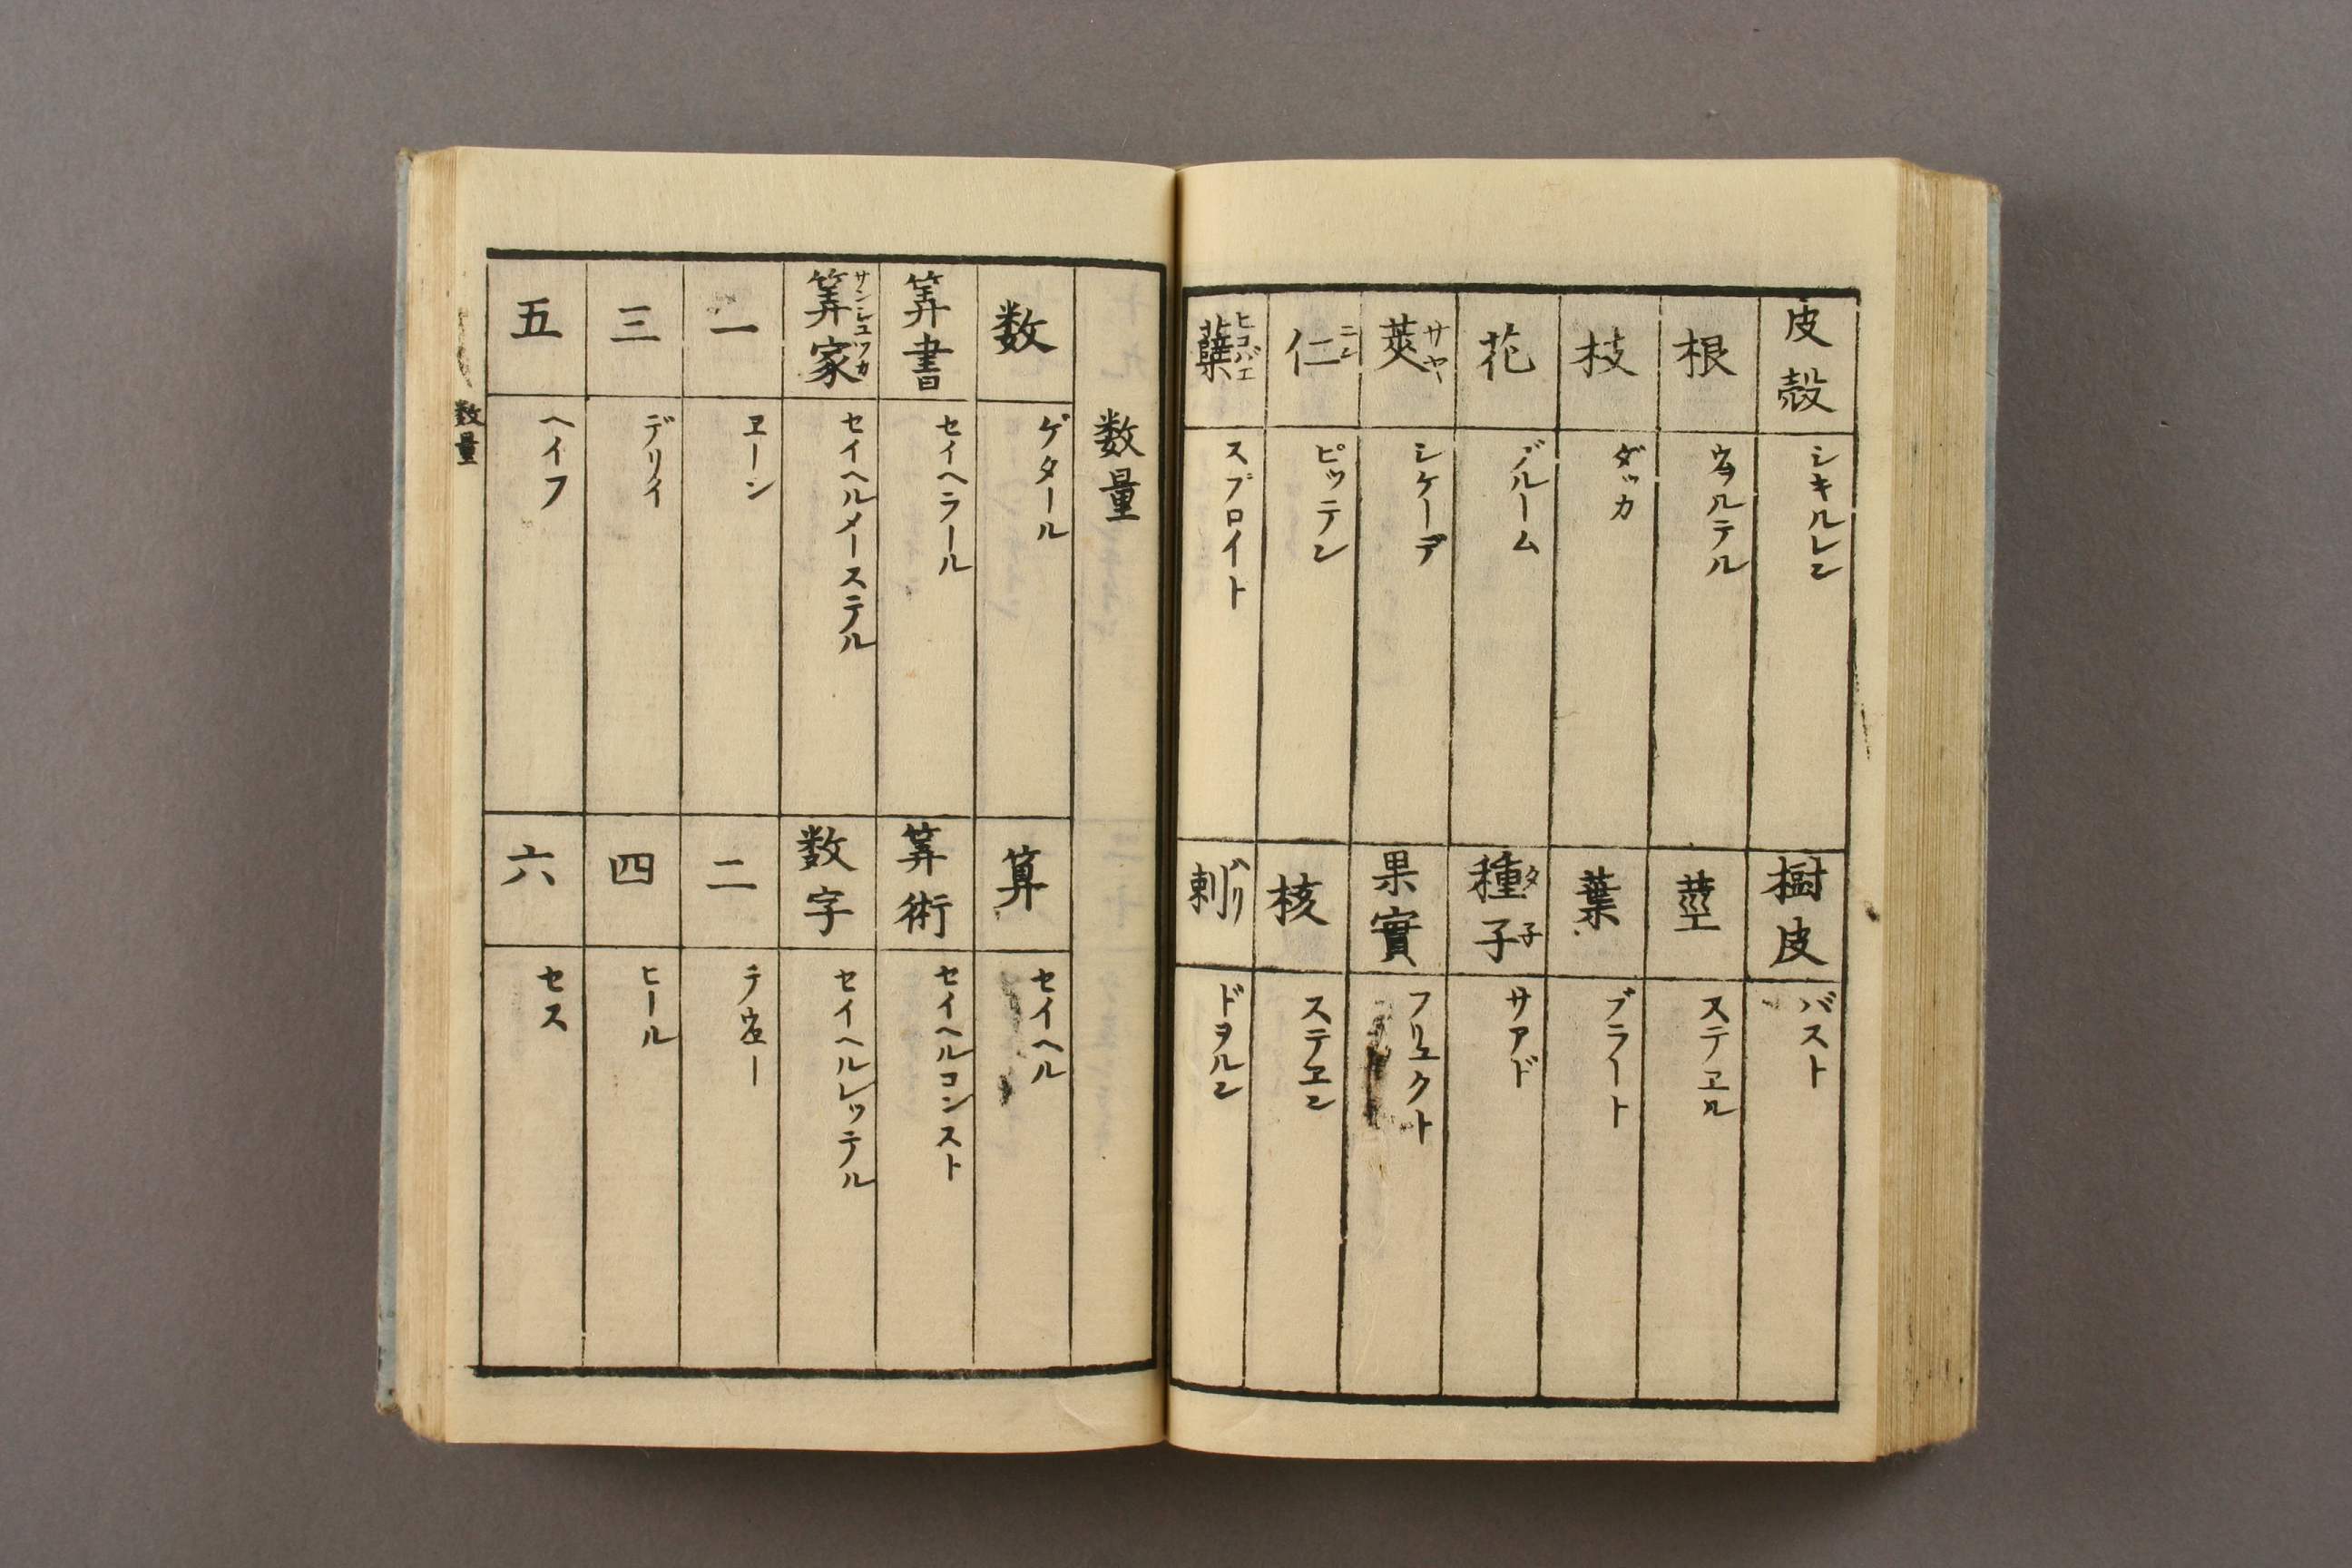 皮殻
シキルレン
根
ウヲルテル
枝
ダッカ
花
ブルーム
莢 サヤ
シケーデ
仁 ニン
ピッテン
蘖 ヒコバエ
スプロイト
樹皮
バスト
莖
ステヱル
葉
ブラート
種子 タ子
サアド
果實
フリュクト
核
ステヱン
刺 ハリ
ドヲルン
数量
数
ゲタール
筭書
セイヘラール
筭家 サンジユツカ
セイヘルメーステル
一
ヱーン
三
デリイ
五
ヘイフ
算
セイヘル
筭術
セイヘルコンスト
数字
セイヘルレッテル
二
テウヱー
四
ヒール
六
セス
数量